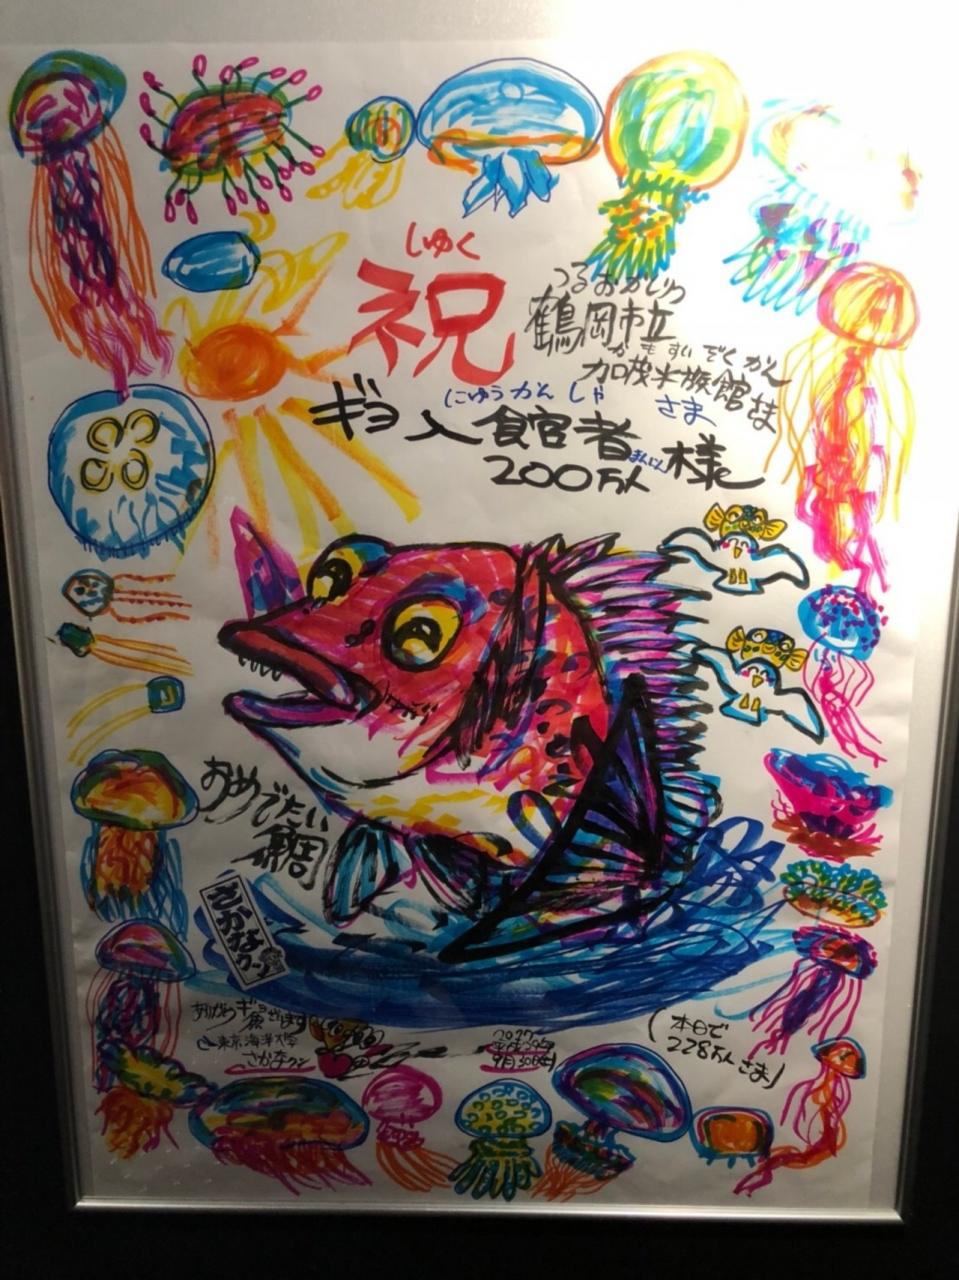 しゅく
祝
つるおかしりつ
鶴岡市立
かもすいぞくかん
加茂水族館さま
にゅうかんしゃ さま
ギョ入館者様
まんにん
200万人
おめでたい
鯛
さかなクン
ありがとうギョざいます
東京海洋大学
さかなクン
2017
平成29年
9月30日
(本日で
228万人さま)